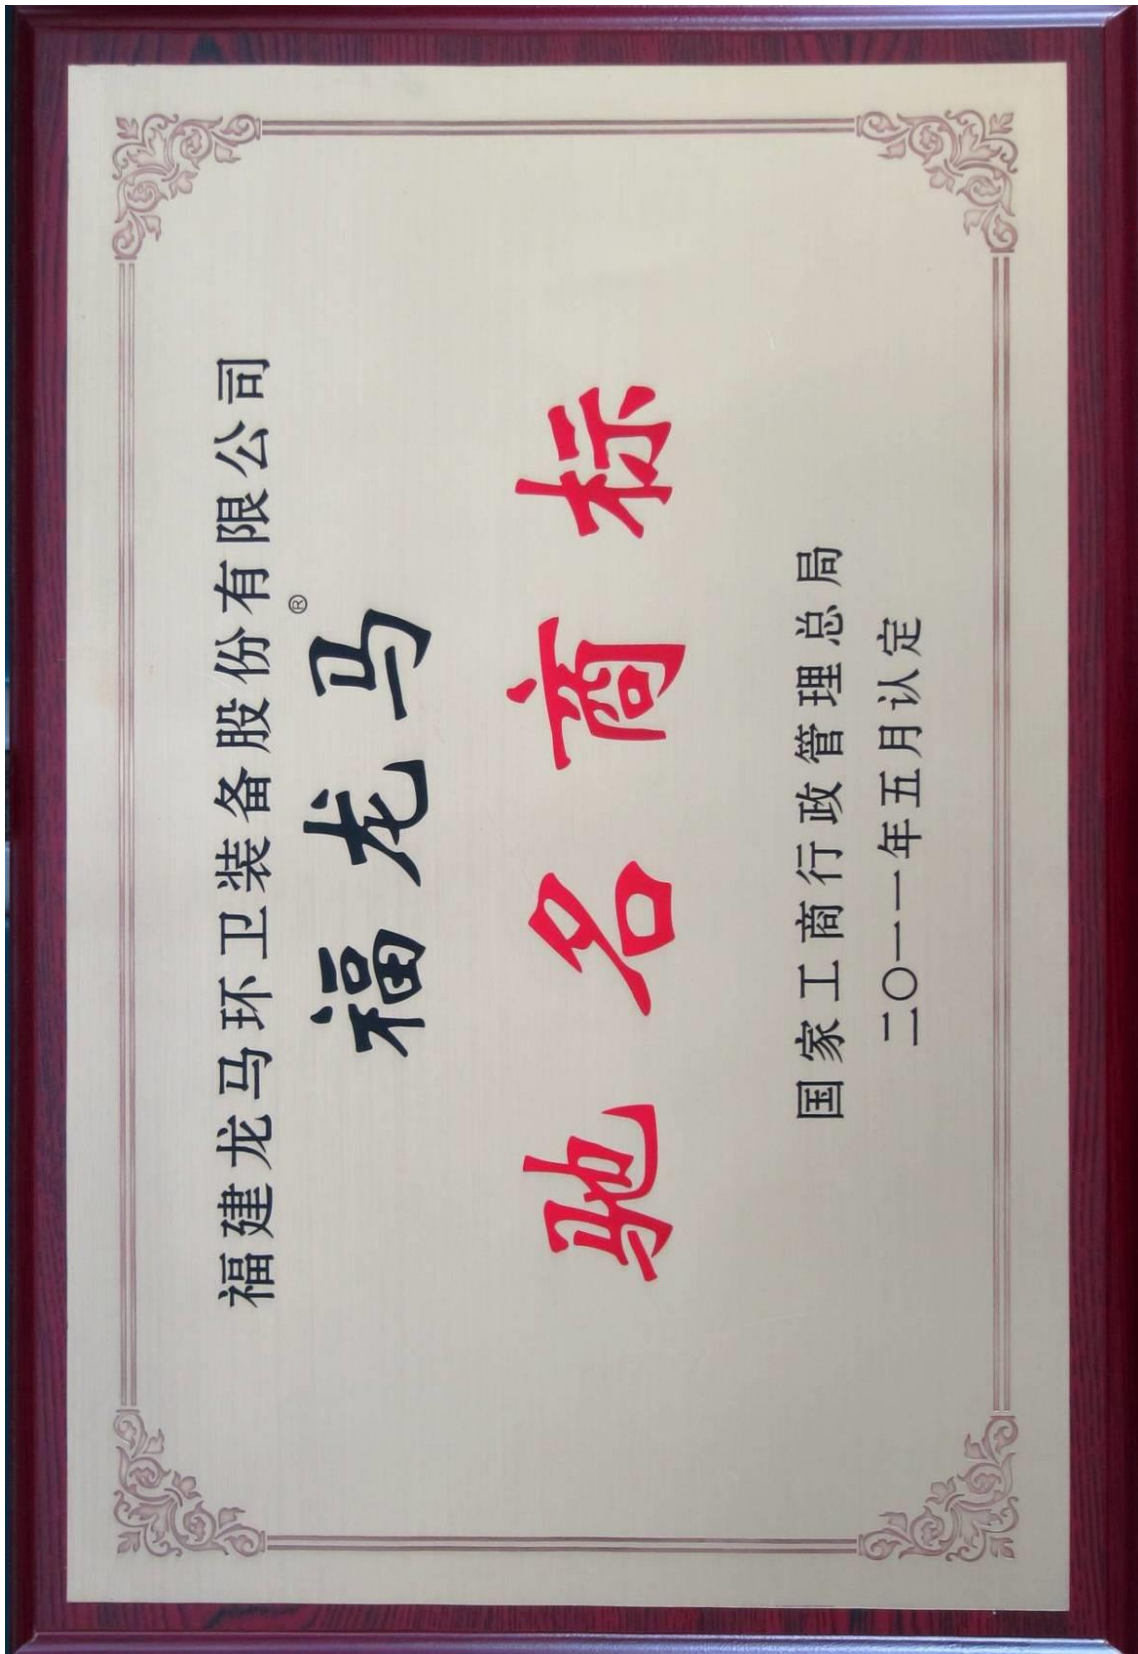 福建龙马环卫装备股份有限公司
福龙马®
驰名商标
国家工商行政管理总局
二〇一一年五月认定